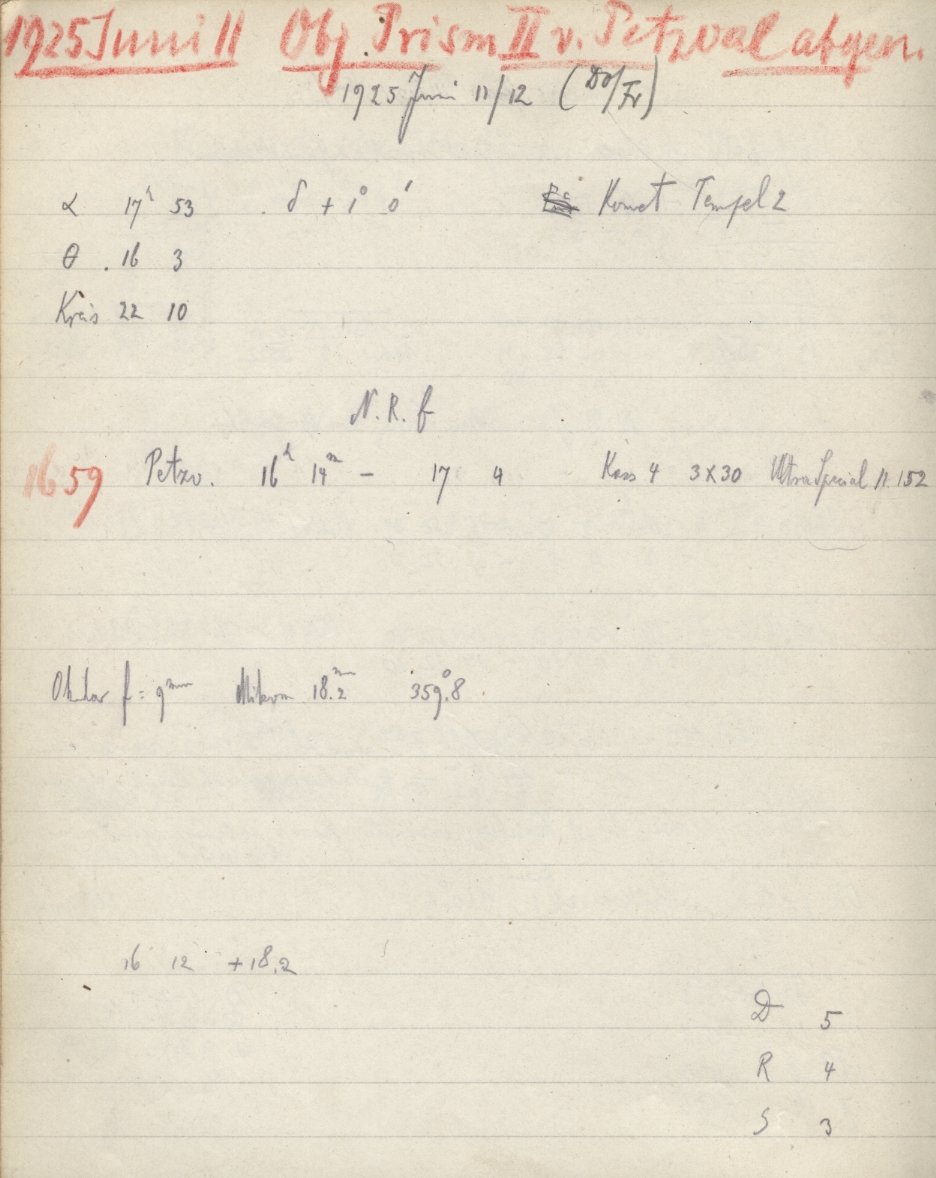 1925 Juni 11 Obj. Prism II v. Petzval abgen.
1925 Juni 11/12 (Do/Fr)
α 17ʰ 53 δ + 1° 0' Komet Tempel 2
θ 16 3
Kreis 22 10
N. R. f
1659 Petzv. 16ʰ 14ᵐ – 17 4 Kass 4 3X30 Ultra Spezial 11.152
Okular f = 9ᵐᵐ Mikrom 18.2ᵐᵐ 359°.8
16 12 +18.2
D 5
R 4
S 3